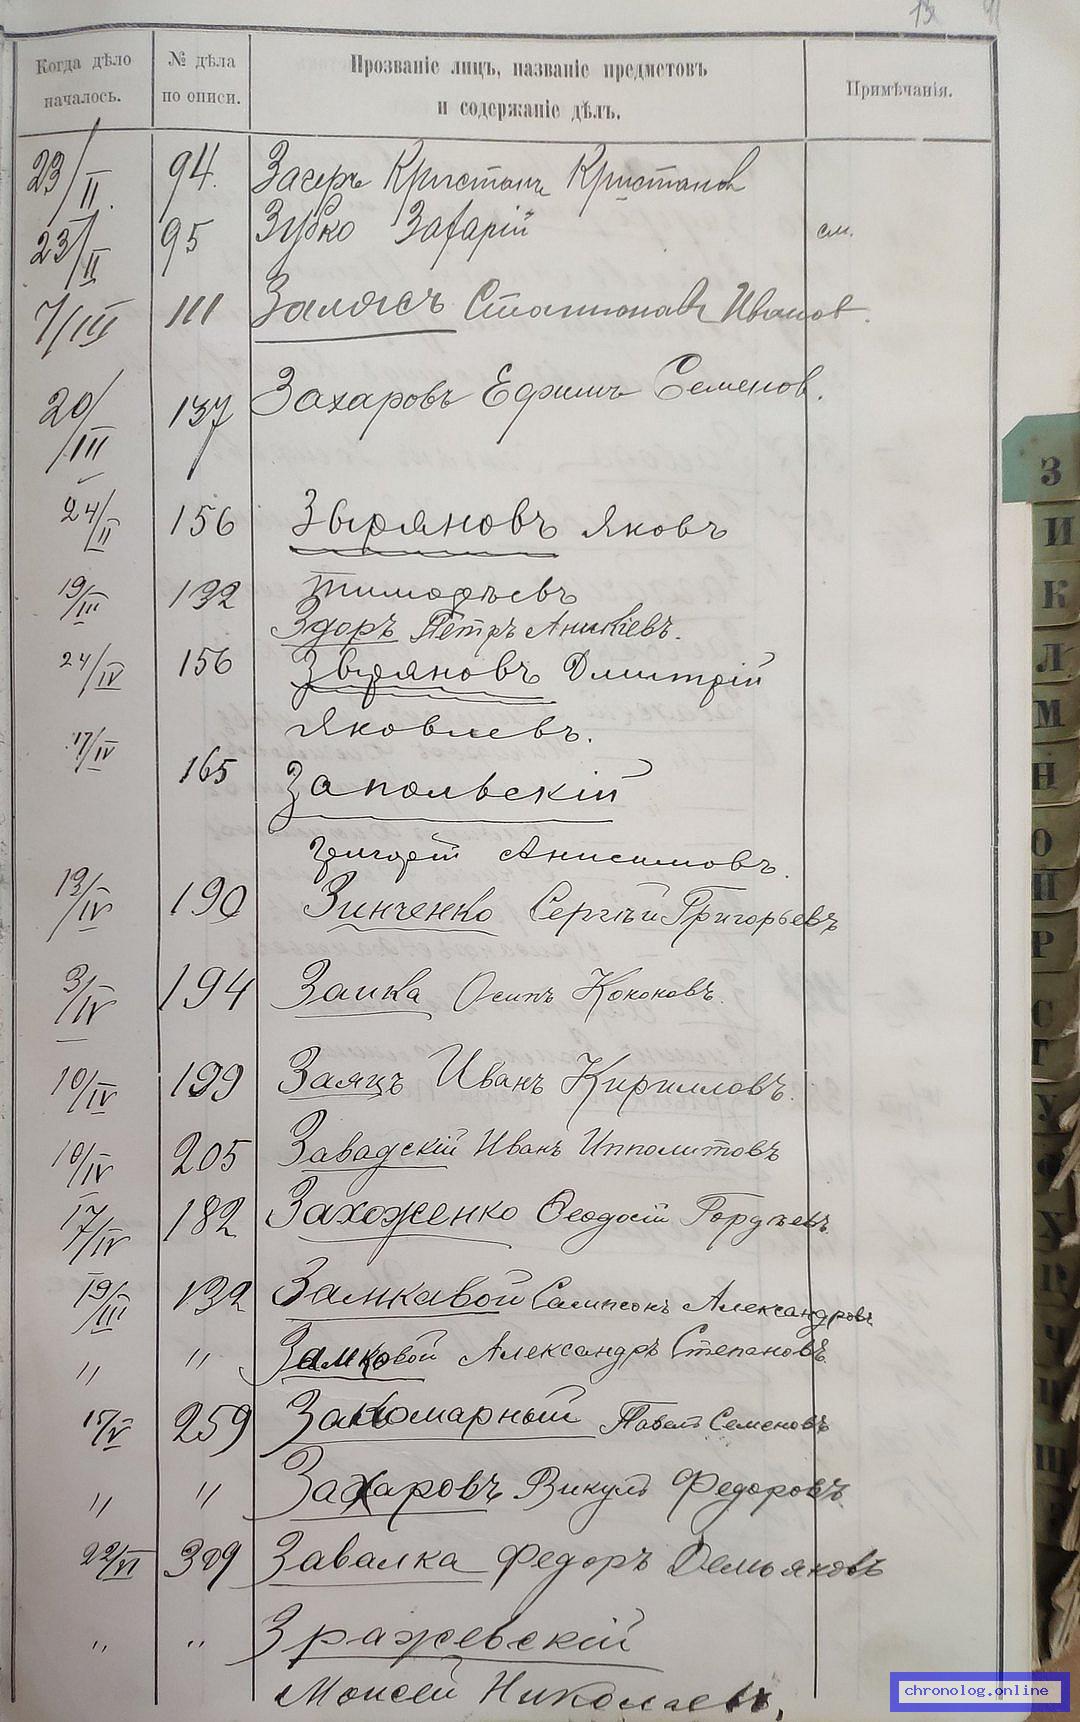 Когда дѣло началось.
№ дѣла по описи.
Прозваніе лицъ, названіе предметовъ
и содержаніе дѣлъ.
Примѣчанія.
23/II 94. Засеръ Кристанъ Кристанов
23/II 95 Зубко Захарій см.
7/III 111 Иванов.
20/III 137 Захаровъ Ефимъ Семенов.
24/II 156 Звѣряновъ Яковъ
Тимофѣевъ
19/III 132 Здоръ Петръ Аникіевъ.
24/IV 156 Звѣряновъ Дмитрій
Яковлевъ.
17/IV 165 Запольскій
Григорій Анисимовъ.
13/IV 190 Зинченко Сергѣй Григорьевъ
3/IV 194 Заика Осипъ Кононовъ.
10/IV 199 Заяцъ Иванъ Кирилловъ.
10/IV 205 Завадскій Иванъ Ипполитовъ
17/IV 182 Захоженко Ѳеодосій Гордѣевъ.
19/III 132 Замкавой Сампсонъ Александровъ
" " Замковой Александръ Степановъ.
15/V 259 Закомарный Павелъ Семеновъ
" " Захаровъ Викулъ Федоровъ.
22/VI 309 Завалка Федоръ Демьяновъ
" " Зражевскій
Моисей Николаевъ.
З
И
К
Л
М
Н
О
П
Р
С
Т
У
Ф
Х
Ц
Ч
Ш
chronolog.online